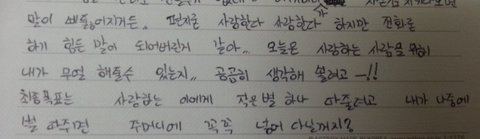 말이 삐뚤어지거든,, 편지론 사랑한다 사랑한다 하지만 전화론
하기 힘든 말이 되어버린거 같아,, 오늘은 사랑하는 사람을 위해
내가 무얼 해줄수 있는지,, 곰곰히 생각해 볼려고 -!!
최종목표는 사랑하는 이에게 작은별 하나 따줄려고 내가 나중에
별 따주면 주머니에 꼭꼭 넣어 다닐꺼지?